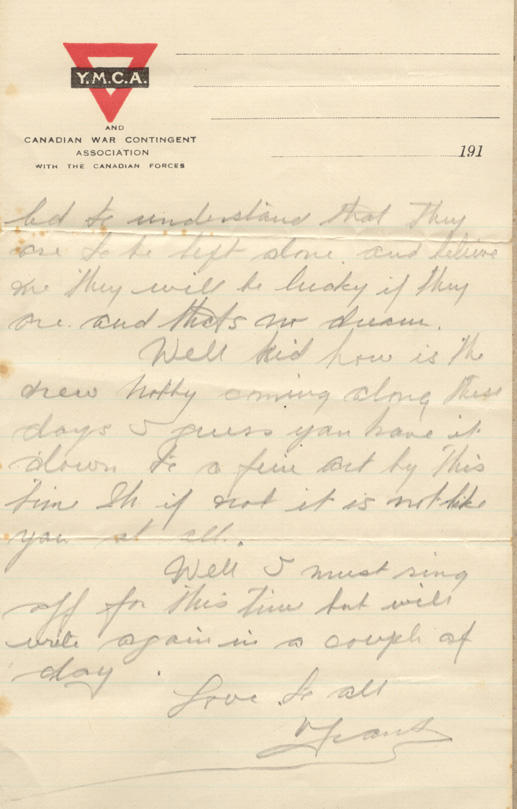 Y.M.C.A.
AND
CANADIAN WAR CONTINGENT
ASSOCIATION
WITH THE CANADIAN FORCES
191
led to understand that they
are to be left alone. and believe
me they will be lucky if they
are. and thats no dream.
Well kid how is the
new hobby coming along these
days I guess you have it
down to a fine art by this
time Eh if not it is not like
you at all.
Well I must ring
off for this time but will
write again in a couple of
day.
Love to all